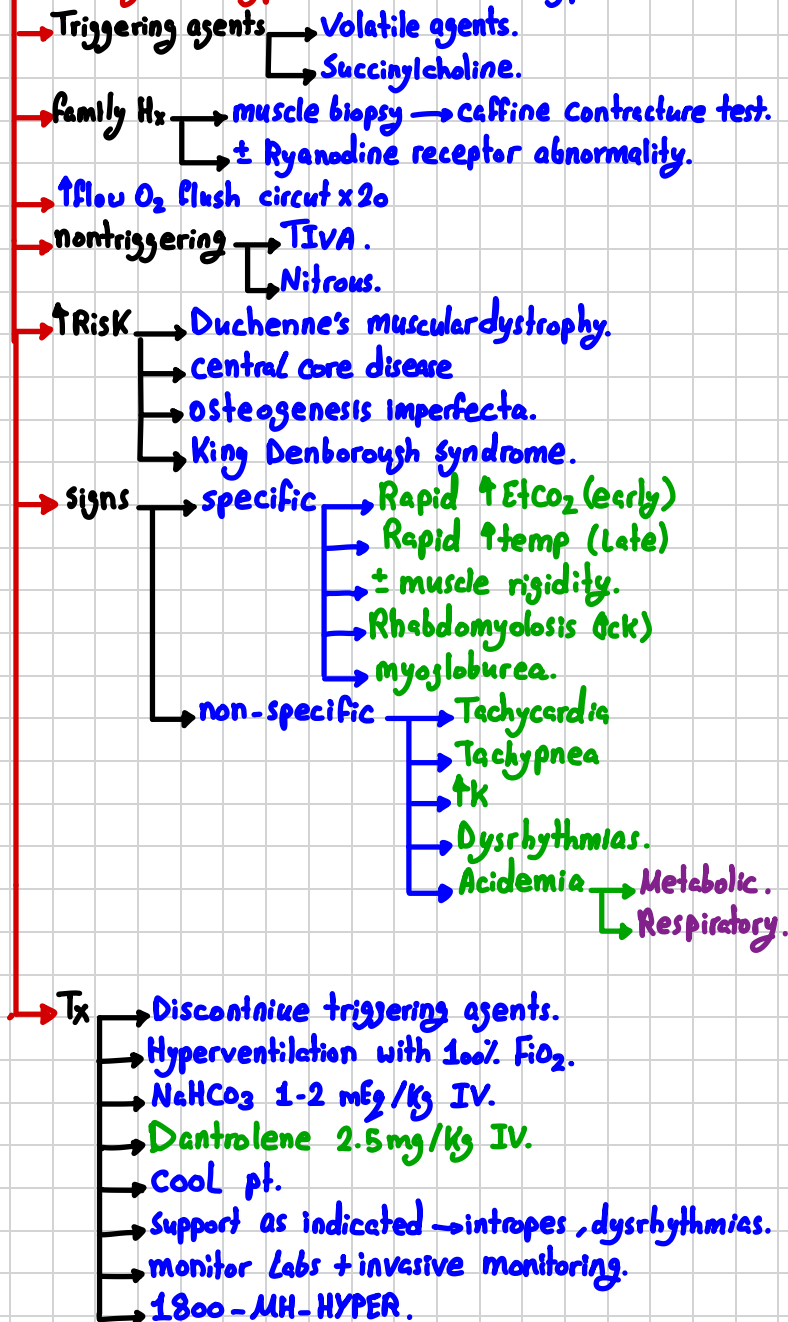 Triggering agents → Volatile agents.
→ Succinylcholine.
family Hx → muscle biopsy → caffine contracture test.
→ ± Ryanodine receptor abnormality.
↑flow O2 flush circut x20
nontriggering → TIVA.
→ Nitrous.
↑Risk → Duchenne's muscular dystrophy.
→ central core disease
→ osteogenesis imperfecta.
→ King Denborough syndrome.
signs → specific → Rapid ↑EtCO2 (early)
→ Rapid ↑temp (late)
→ ± muscle rigidity.
→ Rhabdomyolosis (↑ck)
→ myogloburea.
→ non-specific → Tachycardia
→ Tachypnea
→ ↑K
→ Dysrhythmias.
→ Acidemia → Metabolic.
→ Respiratory.
Tx → Discontniue triggering agents.
→ Hyperventilation with 100% FiO2.
→ NaHCO3 1-2 mEq/Kg IV.
→ Dantrolene 2.5mg/Kg IV.
→ Cool pt.
→ support as indicated → intropes, dysrhythmias.
→ monitor Labs + invasive monitoring.
→ 1800-MH-HYPER.